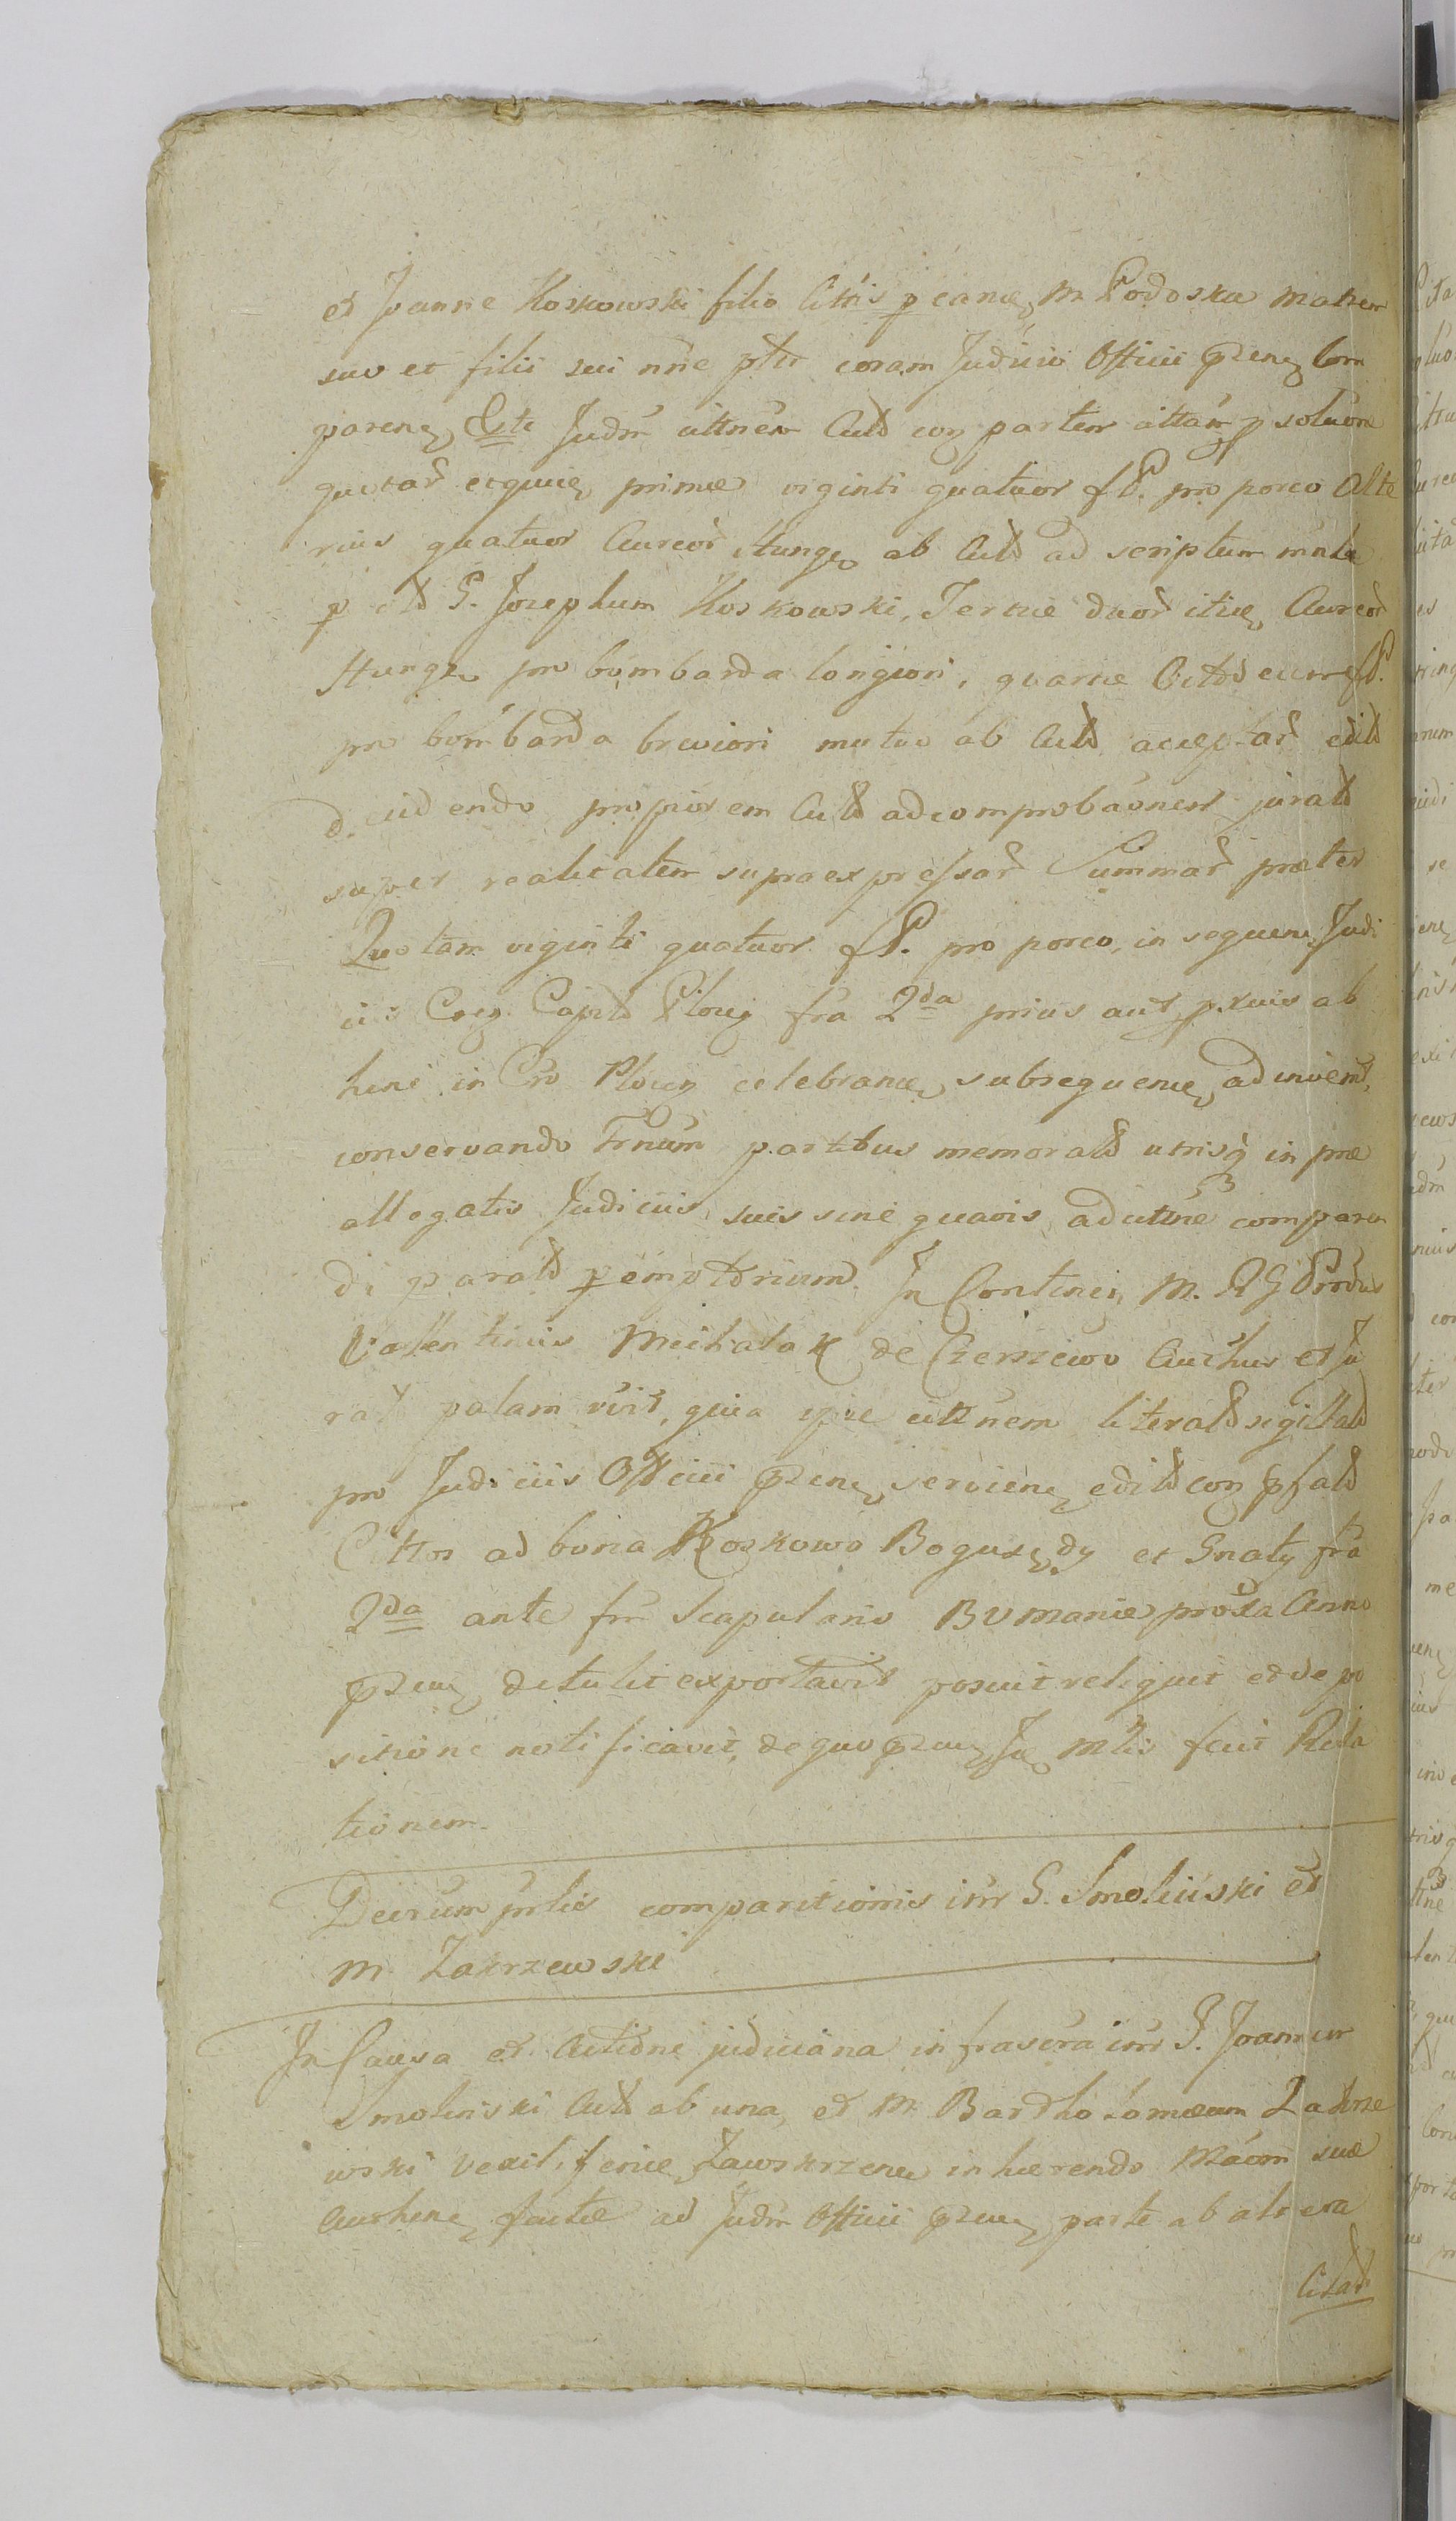 et Joanne Koskowski filio Cittis p eanq M Podoska matrem
suo et filii sui nne ptr coram Judicio Officii prznq Com
parenq Este Judm cittnem Actt coq partem cittam p soluone
quotar eequieq primae viginti quatuor f P. pro porco Alte
rius quatuor Aureor Hungq ab Actt ad scriptum
p citt G. Josephum Koskowski, Tertiae duor itieq Aureor
Hungq pro bombarda longiori, quartae Octodecim f P.
pro bombarda breviori mutuo ab Actt acceptar editt
decidendo propiorem Actt ad comprobaonem juratt
super realitatem supra expressar Summar praeter
Quotam viginti quatuor f P. pro porco, in sequenq Judi
ciis Coeq Captt Plocq fra 2da prius aut p.xuis ab
hinc in Cro Plocen celebranq subsequenq adinvent,
conservando Trnum partibus memoratt utrisq in prae
allegatis Judiciis, suis sine quavis adcittne comparen
di paratt pemptorium. In Continenq M. R G Produs
Valentinus Michalak de Czerniewo Auchus et Ju
rat palam rvit, quia ipse cittnem literatt sigillatt
pro Judiciis Officii prznq servienq editt coq pfatt
Cittos ad bona Koskowo Bogusędy et Gnaty fra
2da ante fm Scapularis B V Mariae proxa Anno
przenq detulit exportavit posuit reliquit et de po
sitione notificavit, de quo prznq Ju mlis fecit Rela
tionem.
Decrum prlis comparitionis intr G. Smoliński et
M. Zakrzewski
In Causa et Actione judiciana infrascra intr G. Joannem
Smolinski Actt ab una, et M. Bartholomaeum Zakrze
wski Vexiliferieq Zawskrzenq inhaerendo Maom suae
Authenq factae ad Judm Officii prznq parte ab altera
Citatt